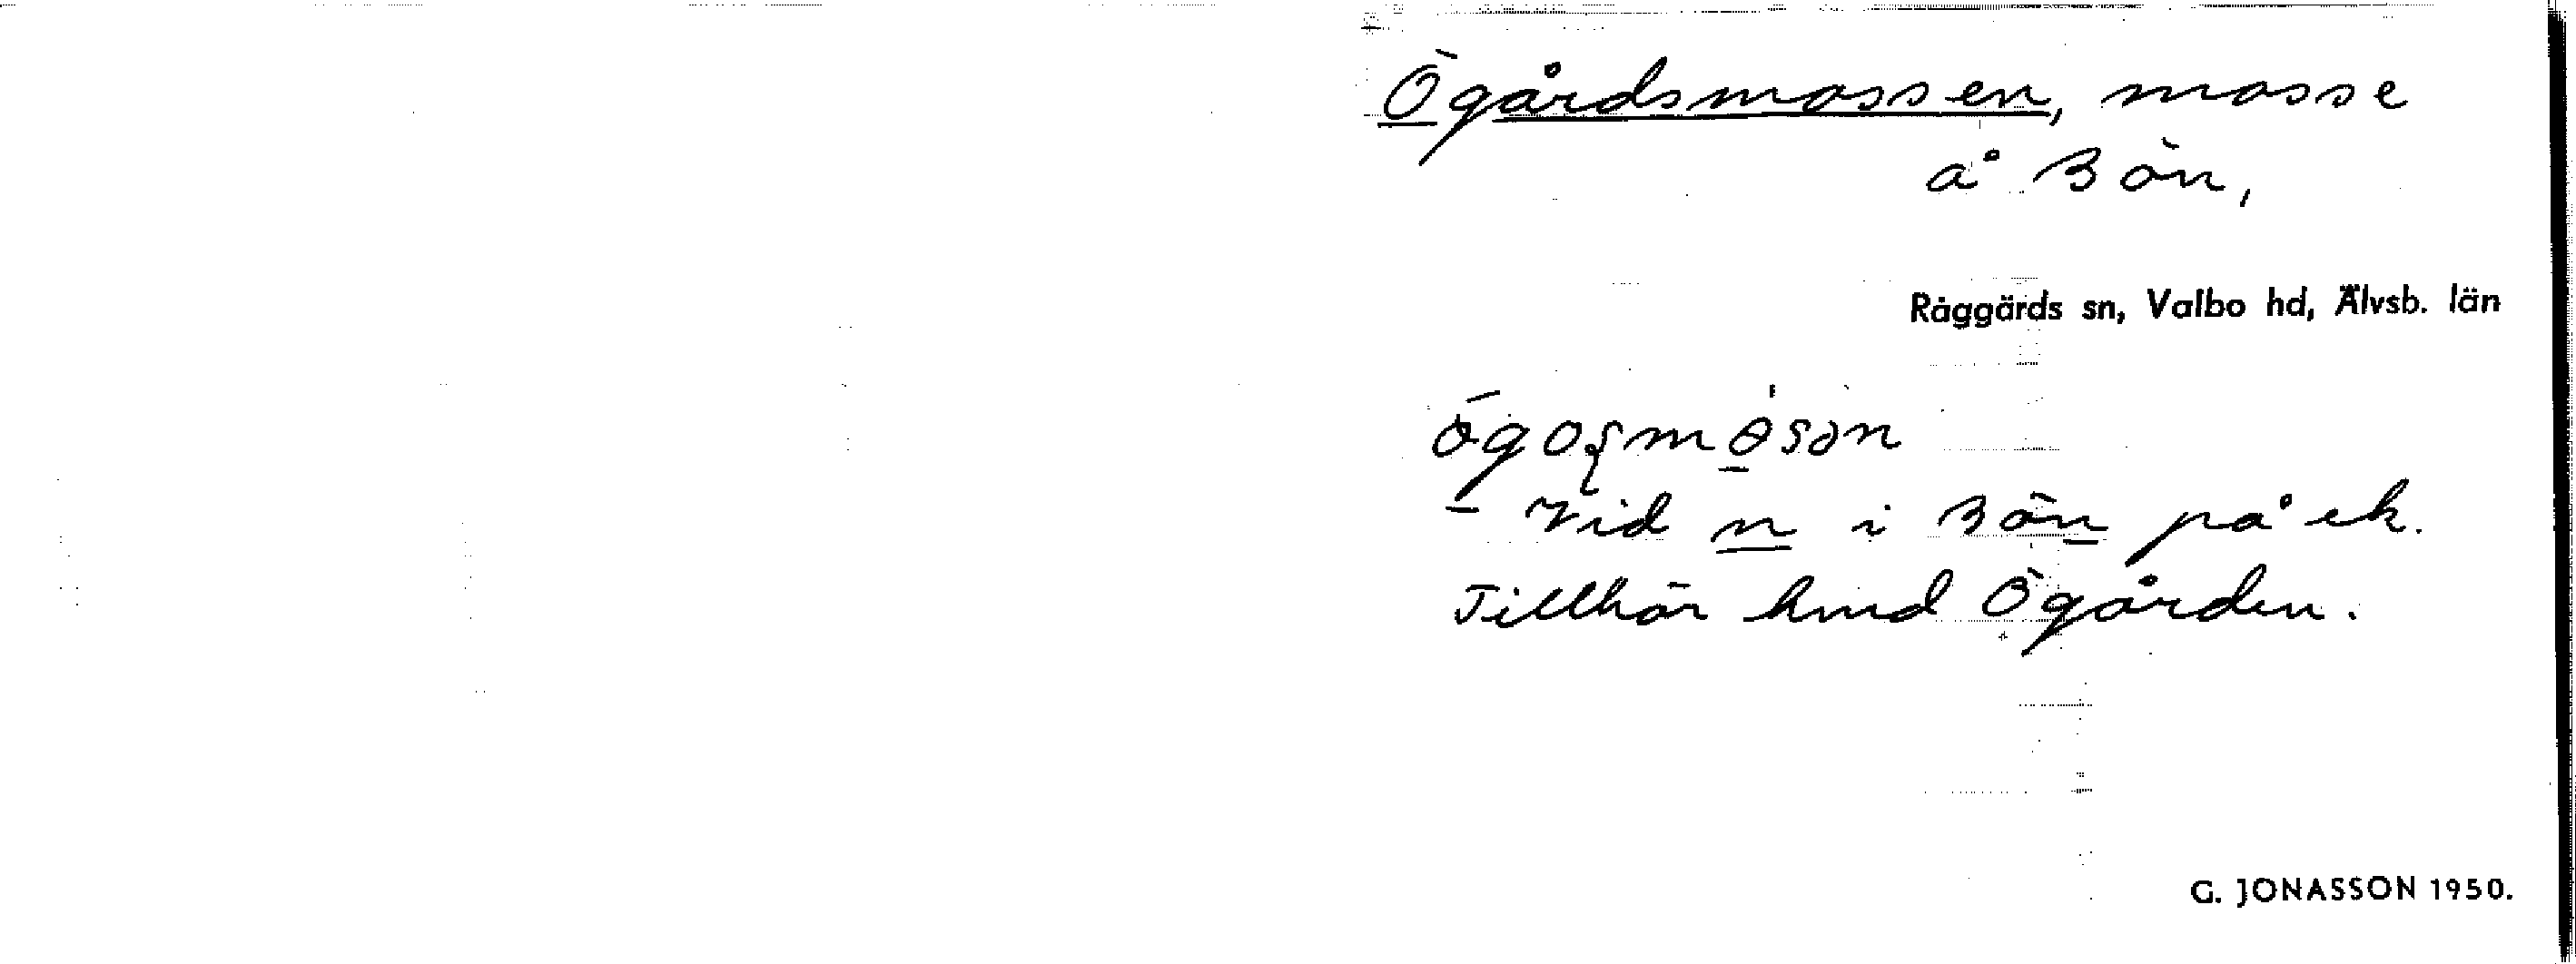 Ögårdsmossen, mosse
å Bön,
Råggärds sn, Valbo hd, Älvsb. län
- Vid n i Bön på ek.
Tillhör hmd Ögården.
G. JONASSON 1950.